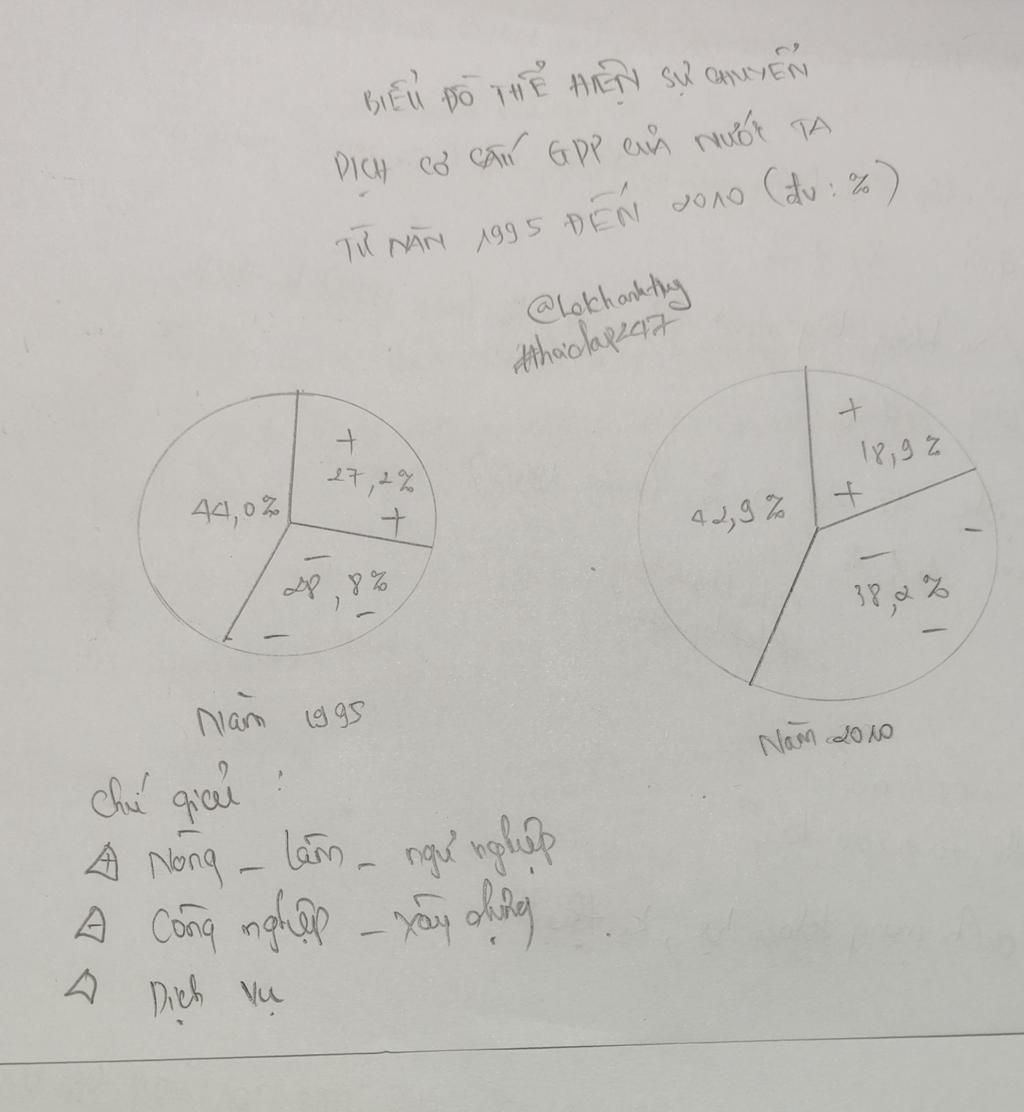 BIỂU ĐỒ THỂ HIỆN SỰ CHUYỂN
DỊCH CƠ CẤU GDP CỦA NƯỚC TA
TỪ NĂM 1995 ĐẾN 2010 (đv: %)
@Lokhanhthy
#hoidap247
+
27,2%
+
44,0%
–
28,8%
–
–
Năm 1995
+
18,9%
+
42,9%
–
–
38,2%
–
Năm 2010
Chú giải:
+ Nông – lâm – ngư nghiệp
– Công nghiệp – xây dựng
Dịch vụ